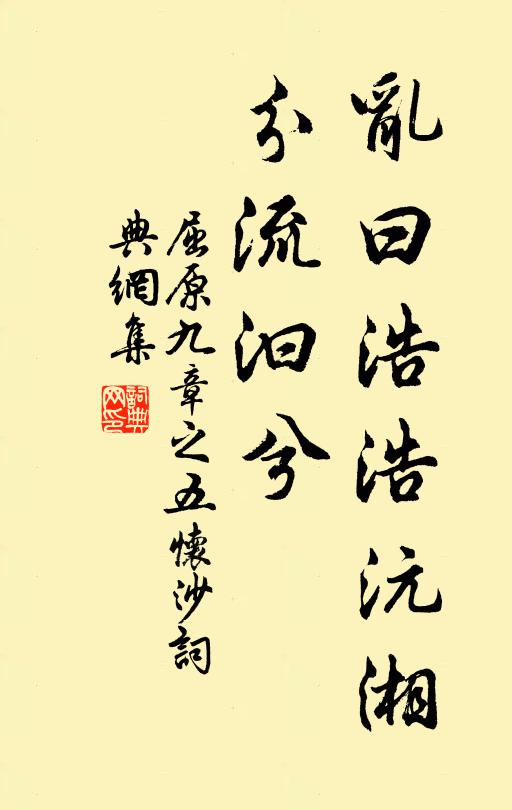 亂曰浩浩沅湘
分流汩兮
屈原九章之五懷沙詞
典網集
詞典
网印